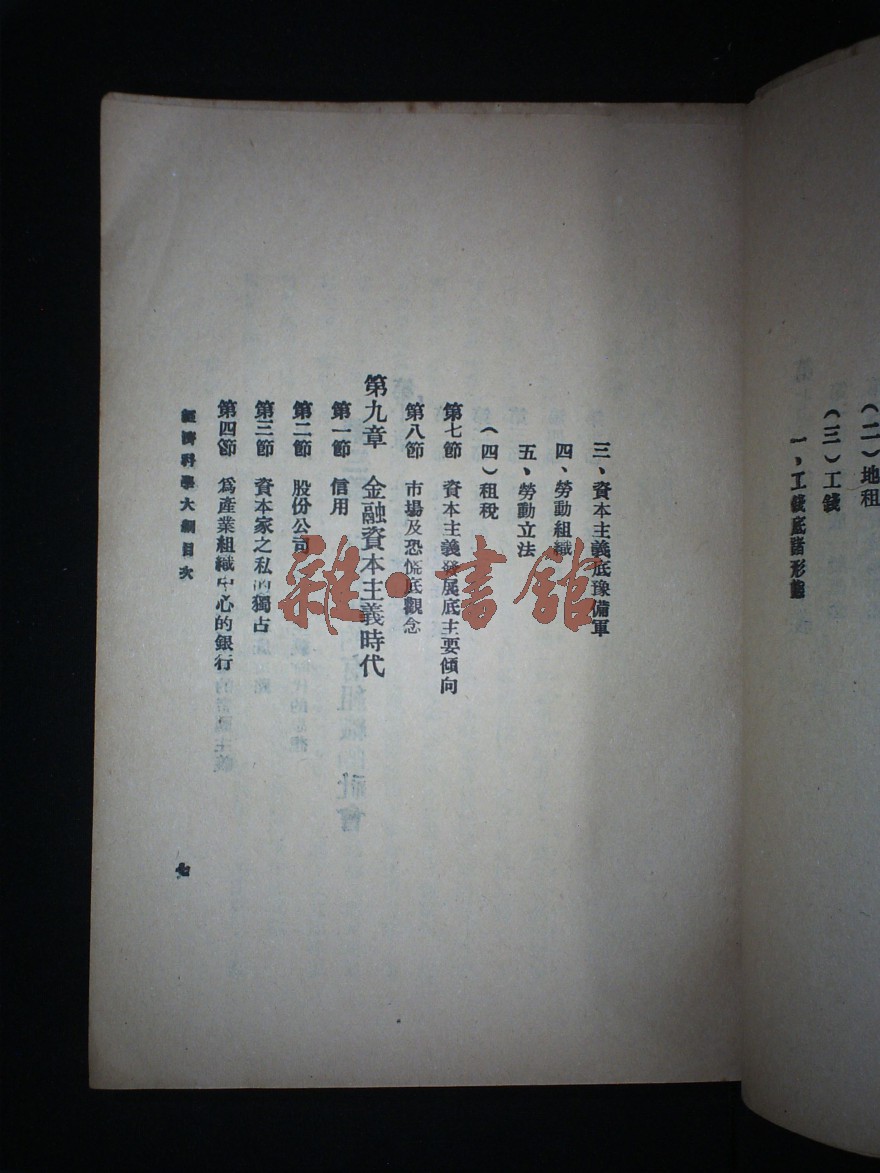 (二)地租
(三)工錢
一、工錢底諸形態
三、資本主義底豫備軍
四、勞動組織
五、勞動立法
(四)租稅
第七節 資本主義發展底主要傾向
第八節 市場及恐慌底觀念
第九章 金融資本主義時代
第一節 信用
第二節 股份公司
第三節 資本家之私的獨占
第四節 爲產業組織中心的銀行
經濟科學大綱目次
七
雜·書館